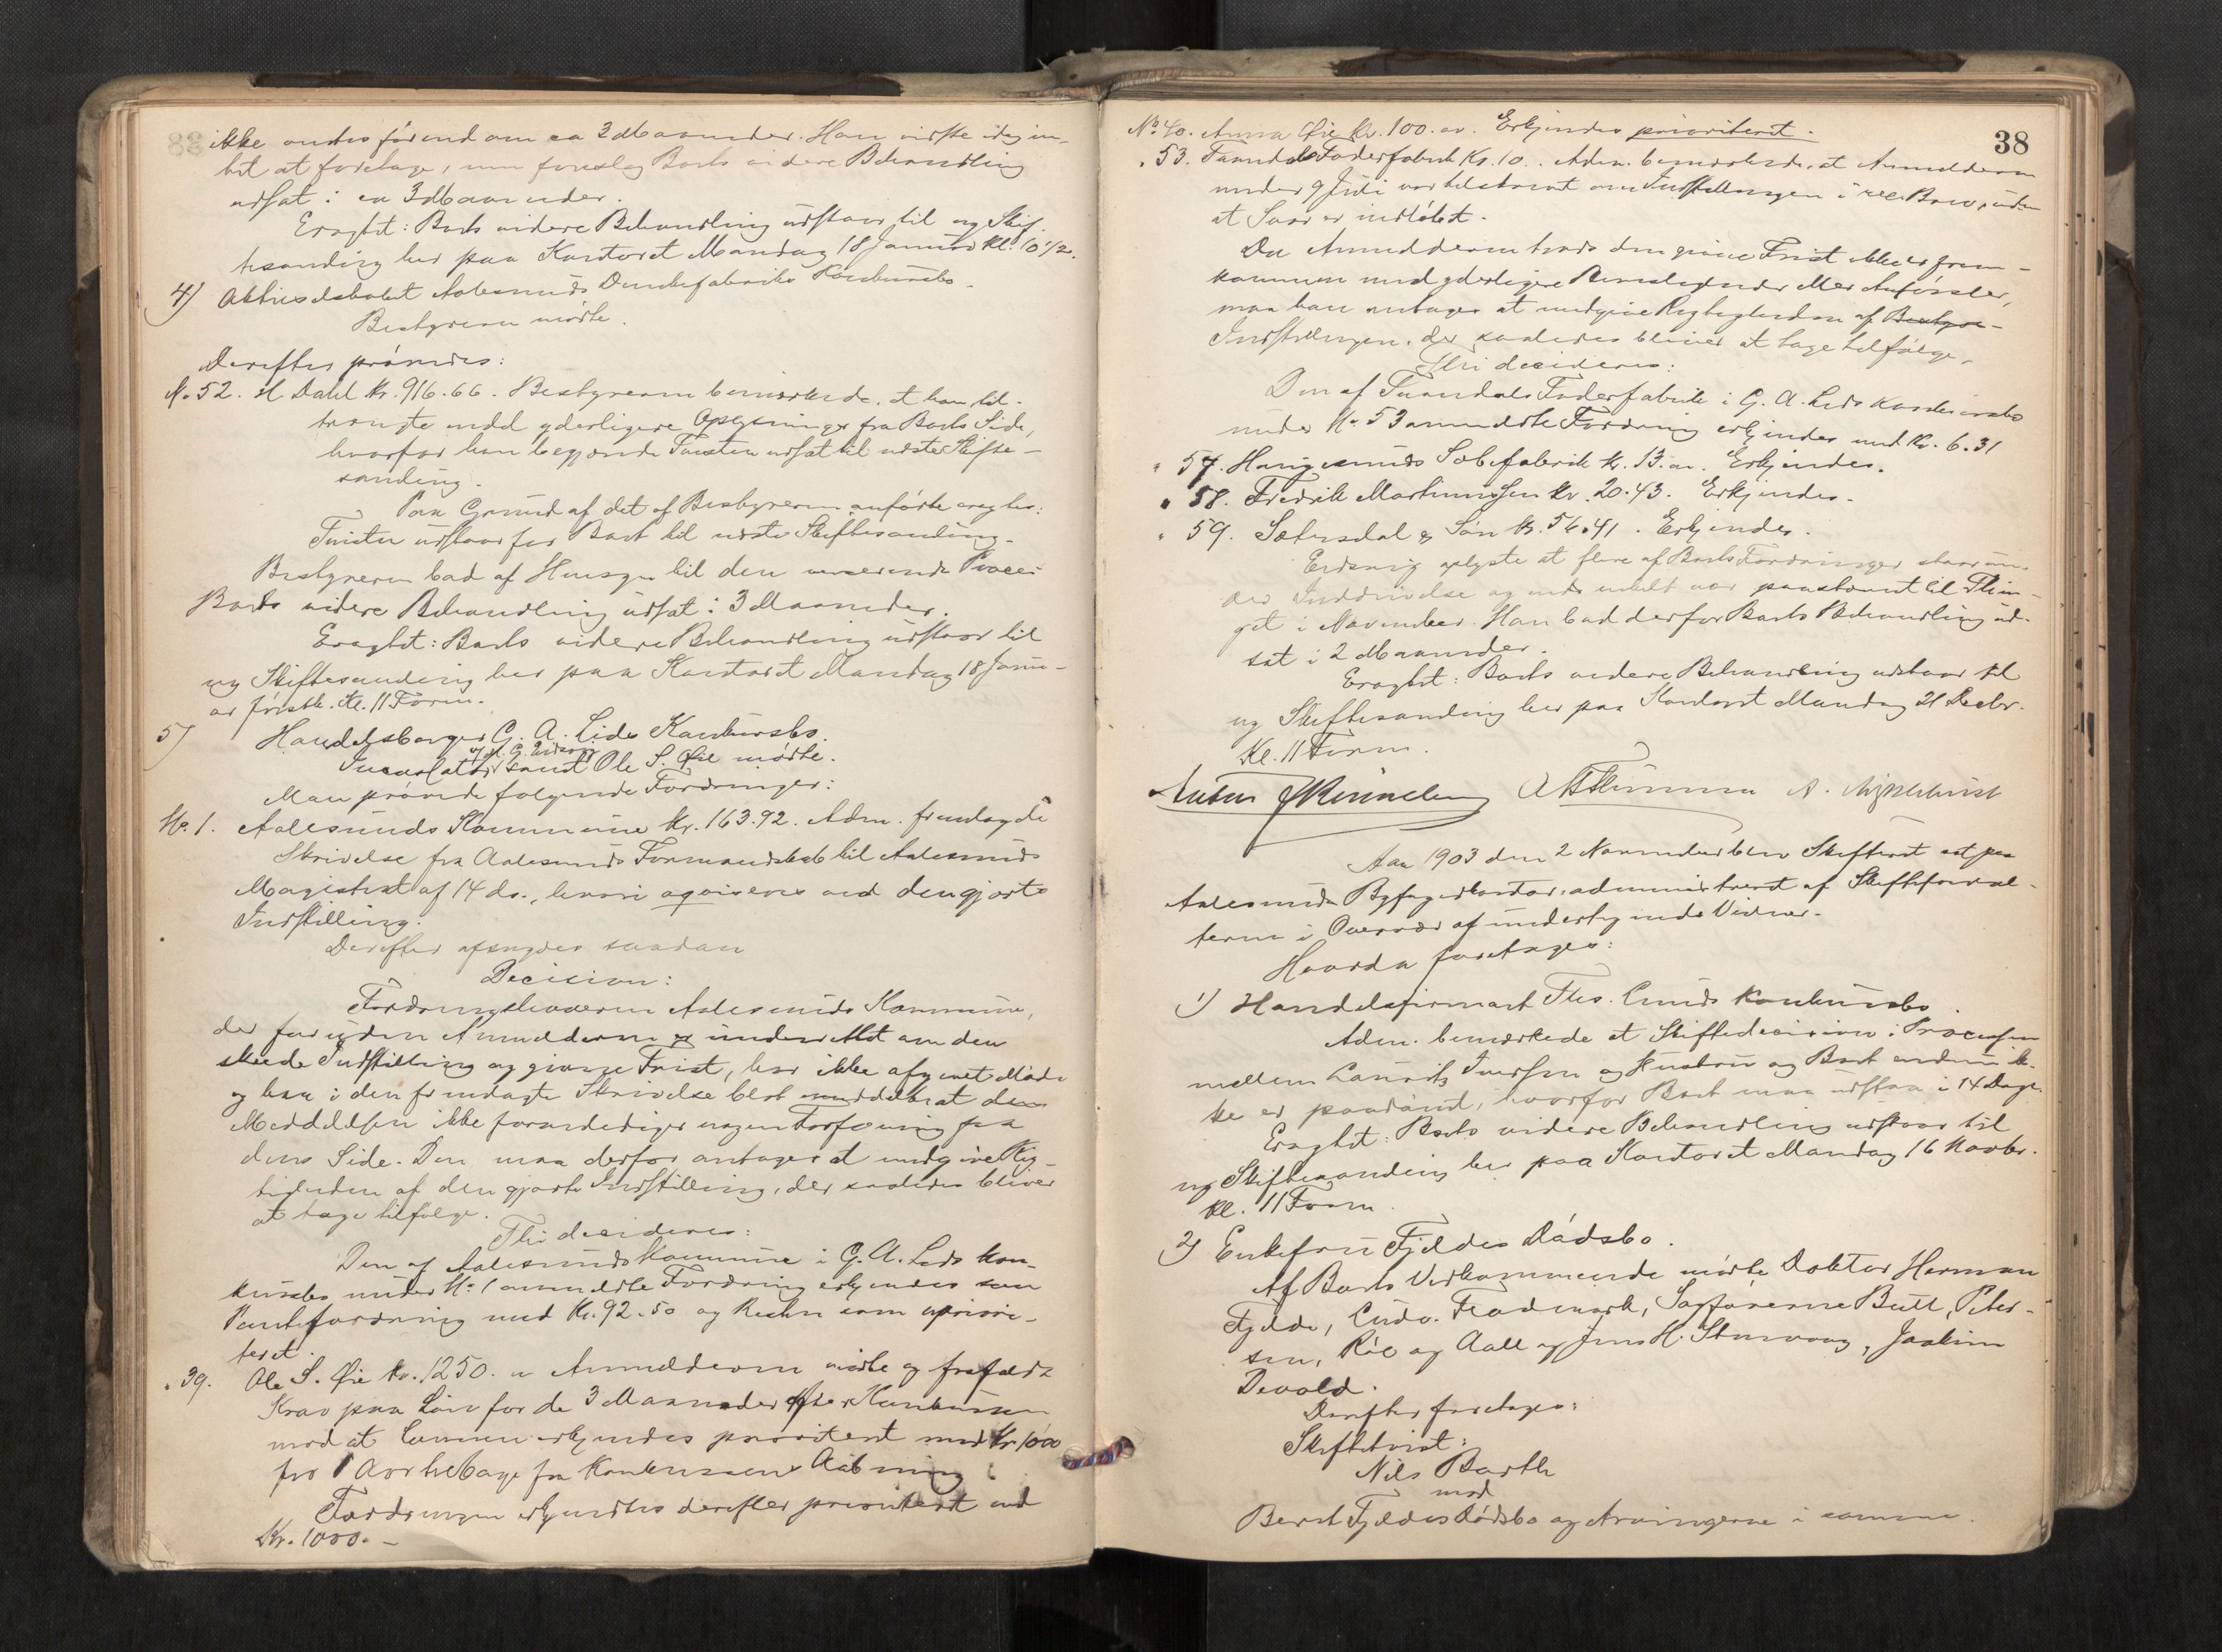 ikke endes førend om ca 3 Maaneder. Han vidste idag in-
tet at foretage, men foreslog Boets videre Behandling
udsat i ca 3 Maaneder.
Eragtet: Boets videre Behandling udstaar til ny Skif-
tesamling her paa Kontoret Mandag 18 Januar Kl. 10 1/2.
4) Aktieselskabet Aalesunds Dunkefabriks Konkursbo.
Bestyreren mødte.
Derefter prøvedes:
No 52. H Dahl Kr. 916.66. Bestyreren bemærkede, at han til-
trængte endel yderligere Oplysninger fra Boets Side,
hvorfor han begjærede Tvisten udsat til næste Skifte-
samling.
Paa Grund af det af Bestyreren anførte eragtes:
Tvisten udstaar for Boet til næste Skiftesamling.
Bestyreren bad af Hensyn til den verserende Proces
Boets videre Behandling udsat i 3 Maaneder.
Eragtet: Boets videre Behandling udstaar til
ny Skiftesamling her paa Kontoret Mandag 18 Janu-
ar førstk. Kl. 11 Form.
5) Handelsborger G. A. Lids Konkursbo.
Incassator samt Ole S. Øie mødte.
Man prøvede følgende Fordringer:
No. 1. Aalesunds Kommune Kr. 163.92. Adm. fremlagde
Skrivelse fra Aalesunds Formandskab til Aalesunds
Magistrat af 14 ds., hvori aqvisceres ved den gjorte
Indstilling.
Derefter afsagdes saadan
Decision:
Fordringshaveren Aalesunds Kommune,
der foruden Anmelderen er underrettet om den
skeede Indstilling og givne Frist, har ikke afgivet Møde
og har i den fremlagte Skrivelse blot meddelt at den
Meddelelsen ikke foranlediger nogen Forføining fra
dens Side. Den maa derfor antages at medgive Rig-
tigheden af den gjorte Indstilling, der saaledes bliver
at tage tilfølge.
Thi decideres:
Den af Aalesunds Kommune i G. A. Lids Kon-
kursbo under No 1 anmeldte Fordring erkjendes som
Pantefordring med Kr. 92.50 og Resten som upriori-
teret.
" 39. Ole S. Øie Kr. 1250. Anmelderen mødte og frafaldt
Krav paa Løn for de 3 Maaneder efter Konkursen
mod at Lønnen erkjendes prioritert med Kr 1000
for 1 Aar tilbage fra Konkursens Aabning.
Fordringen erkjendtes derefter prioritert med
Kr. 1000.-
38
No. 40. Anna Øie Kr. 100. Erkjendes prioritert.
" 53. Foderfabrik Kr. 10. Adm. bemærkede, at Anmelderen
under 9 Juli var tilskrevet om Indstillingen i rec. Brev, uden
at Svar er indløbet.
Da Anmelderen trods den givne Frist ikke er frem-
kommen med yderligere Bevisligheder eller Anførsler,
maa han antages at medgive Rigtigheden af Bestyre-
Indstillingen, der saaledes bliver at tage tilfølge.
Thi decideres:
Den af Foderfabrik i G. A. Lids Konkursbo
under No. 53 anmeldte Fordring erkjendes med Kr. 6.31
" 57. Haugesunds Sæbefabrik Kr. 13. Erkjendes.
" 58. Fredrik Martinussen Kr. 20.43. Erkjendes.
" 59. Sætersdal & Søn Kr. 56.41. Erkjendes.
oplyste at flere af Boets Fordringer staar un-
der Inddrivelse og endel enkelt var paastævnt til Thin-
get i November. Han bad derfor Boets Behandling ud-
sat i 2 Maaneder.
Eragtet: Boets videre Behandling udstaar til
ny Skiftesamling her paa Kontoret Mandag 21 Decbr.
Kl. 11 Form.
Aar 1903 den 2 November blev Skifteret sat paa
Aalesunds Byfogedkontor, administreret af Skifteforval-
teren i Overvær af undertegnede Vidner.
Hvorda foretoges:
1) Handelsfirmaet Ths. Lunds Konkursbo.
Adm. bemærkede at Skiftedecision i Processen
mellem Lauritz Iversen og Hustru og Boet endnu ik-
ke er paadømt, hvorfor Boet maa udstaa i 14 Dage.
Eragtet: Boets videre Behandling udstaar til
ny Skiftesamling her paa Kontoret Mandag 16 Novbr.
Kl. 11 Form.
2) Enkefru Fjeldes Dødsbo.
Af Boets Vedkommende mødte Doktor Herman
Fjelde, Sagførerne Bull, Peter-
sen, Røe og Aall og Jens H. , Joakim
Devold.
Derefter foretoges:
Skiftetvist:
Nils Barth
mod
Bernt Fjeldes Dødsbo og Arvingerne i samme.